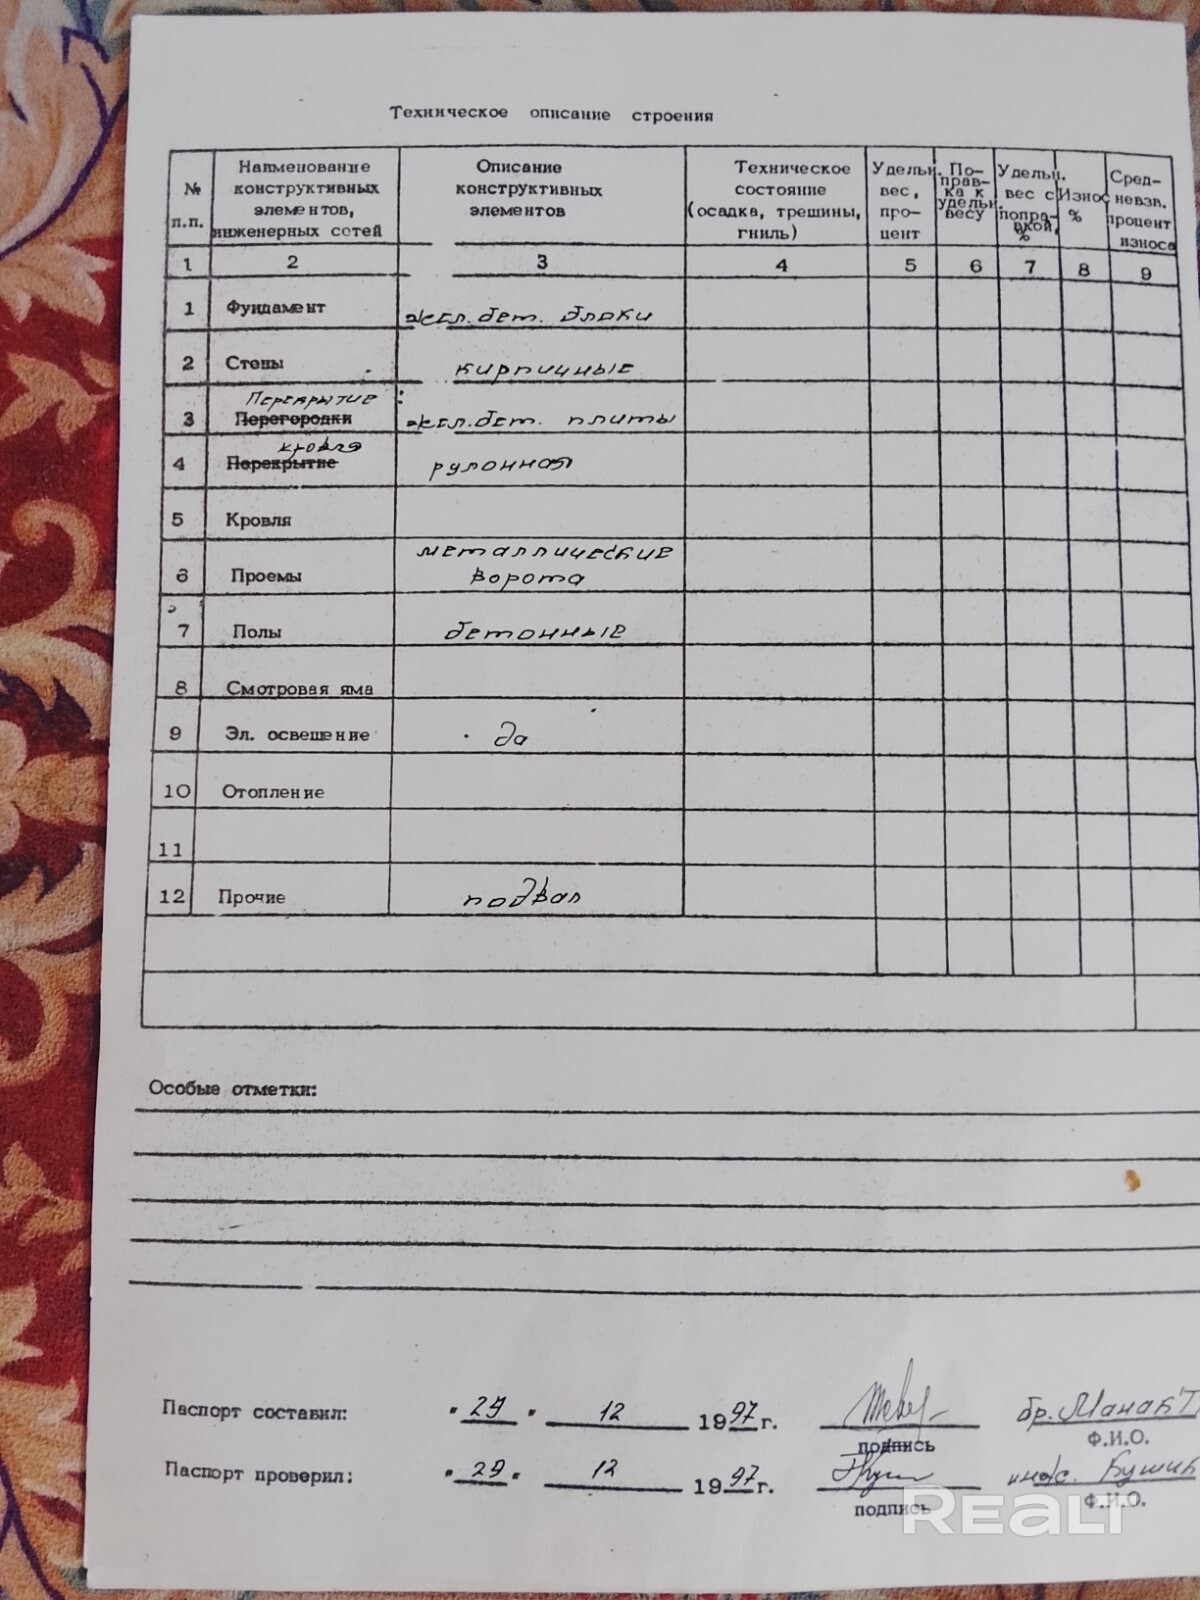 Техническое описание строения
№ п.п. Наименование конструктивных элементов, инженерных сетей Описание конструктивных элементов Техническое состояние (осадка, трешины, гниль) Удельн. вес, про- цент По- прав- ка к удельн. весу Удельн. вес с попра- вкой, % Износ % Сред- невзв. процент износа
1 2 3 4 5 6 7 8 9
1 Фундамент жел.бет. блоки
2 Стены кирпичные
Перекрытие :
3 Перегородки жел.бет. плиты
кровля
4 Перекрытие рулонная
5 Кровля
металлические
6 Проемы ворота
7 Полы бетонные
8 Смотровая яма
9 Эл. освещение да
10 Отопление
11
12 Прочие подвал
Особые отметки:
Паспорт составил: "29" 12 1997г. бр. Манак
подпись Ф.И.О.
Паспорт проверил: "29" 12 1997г. инж. Кушик
подпись Ф.И.О.
REALT